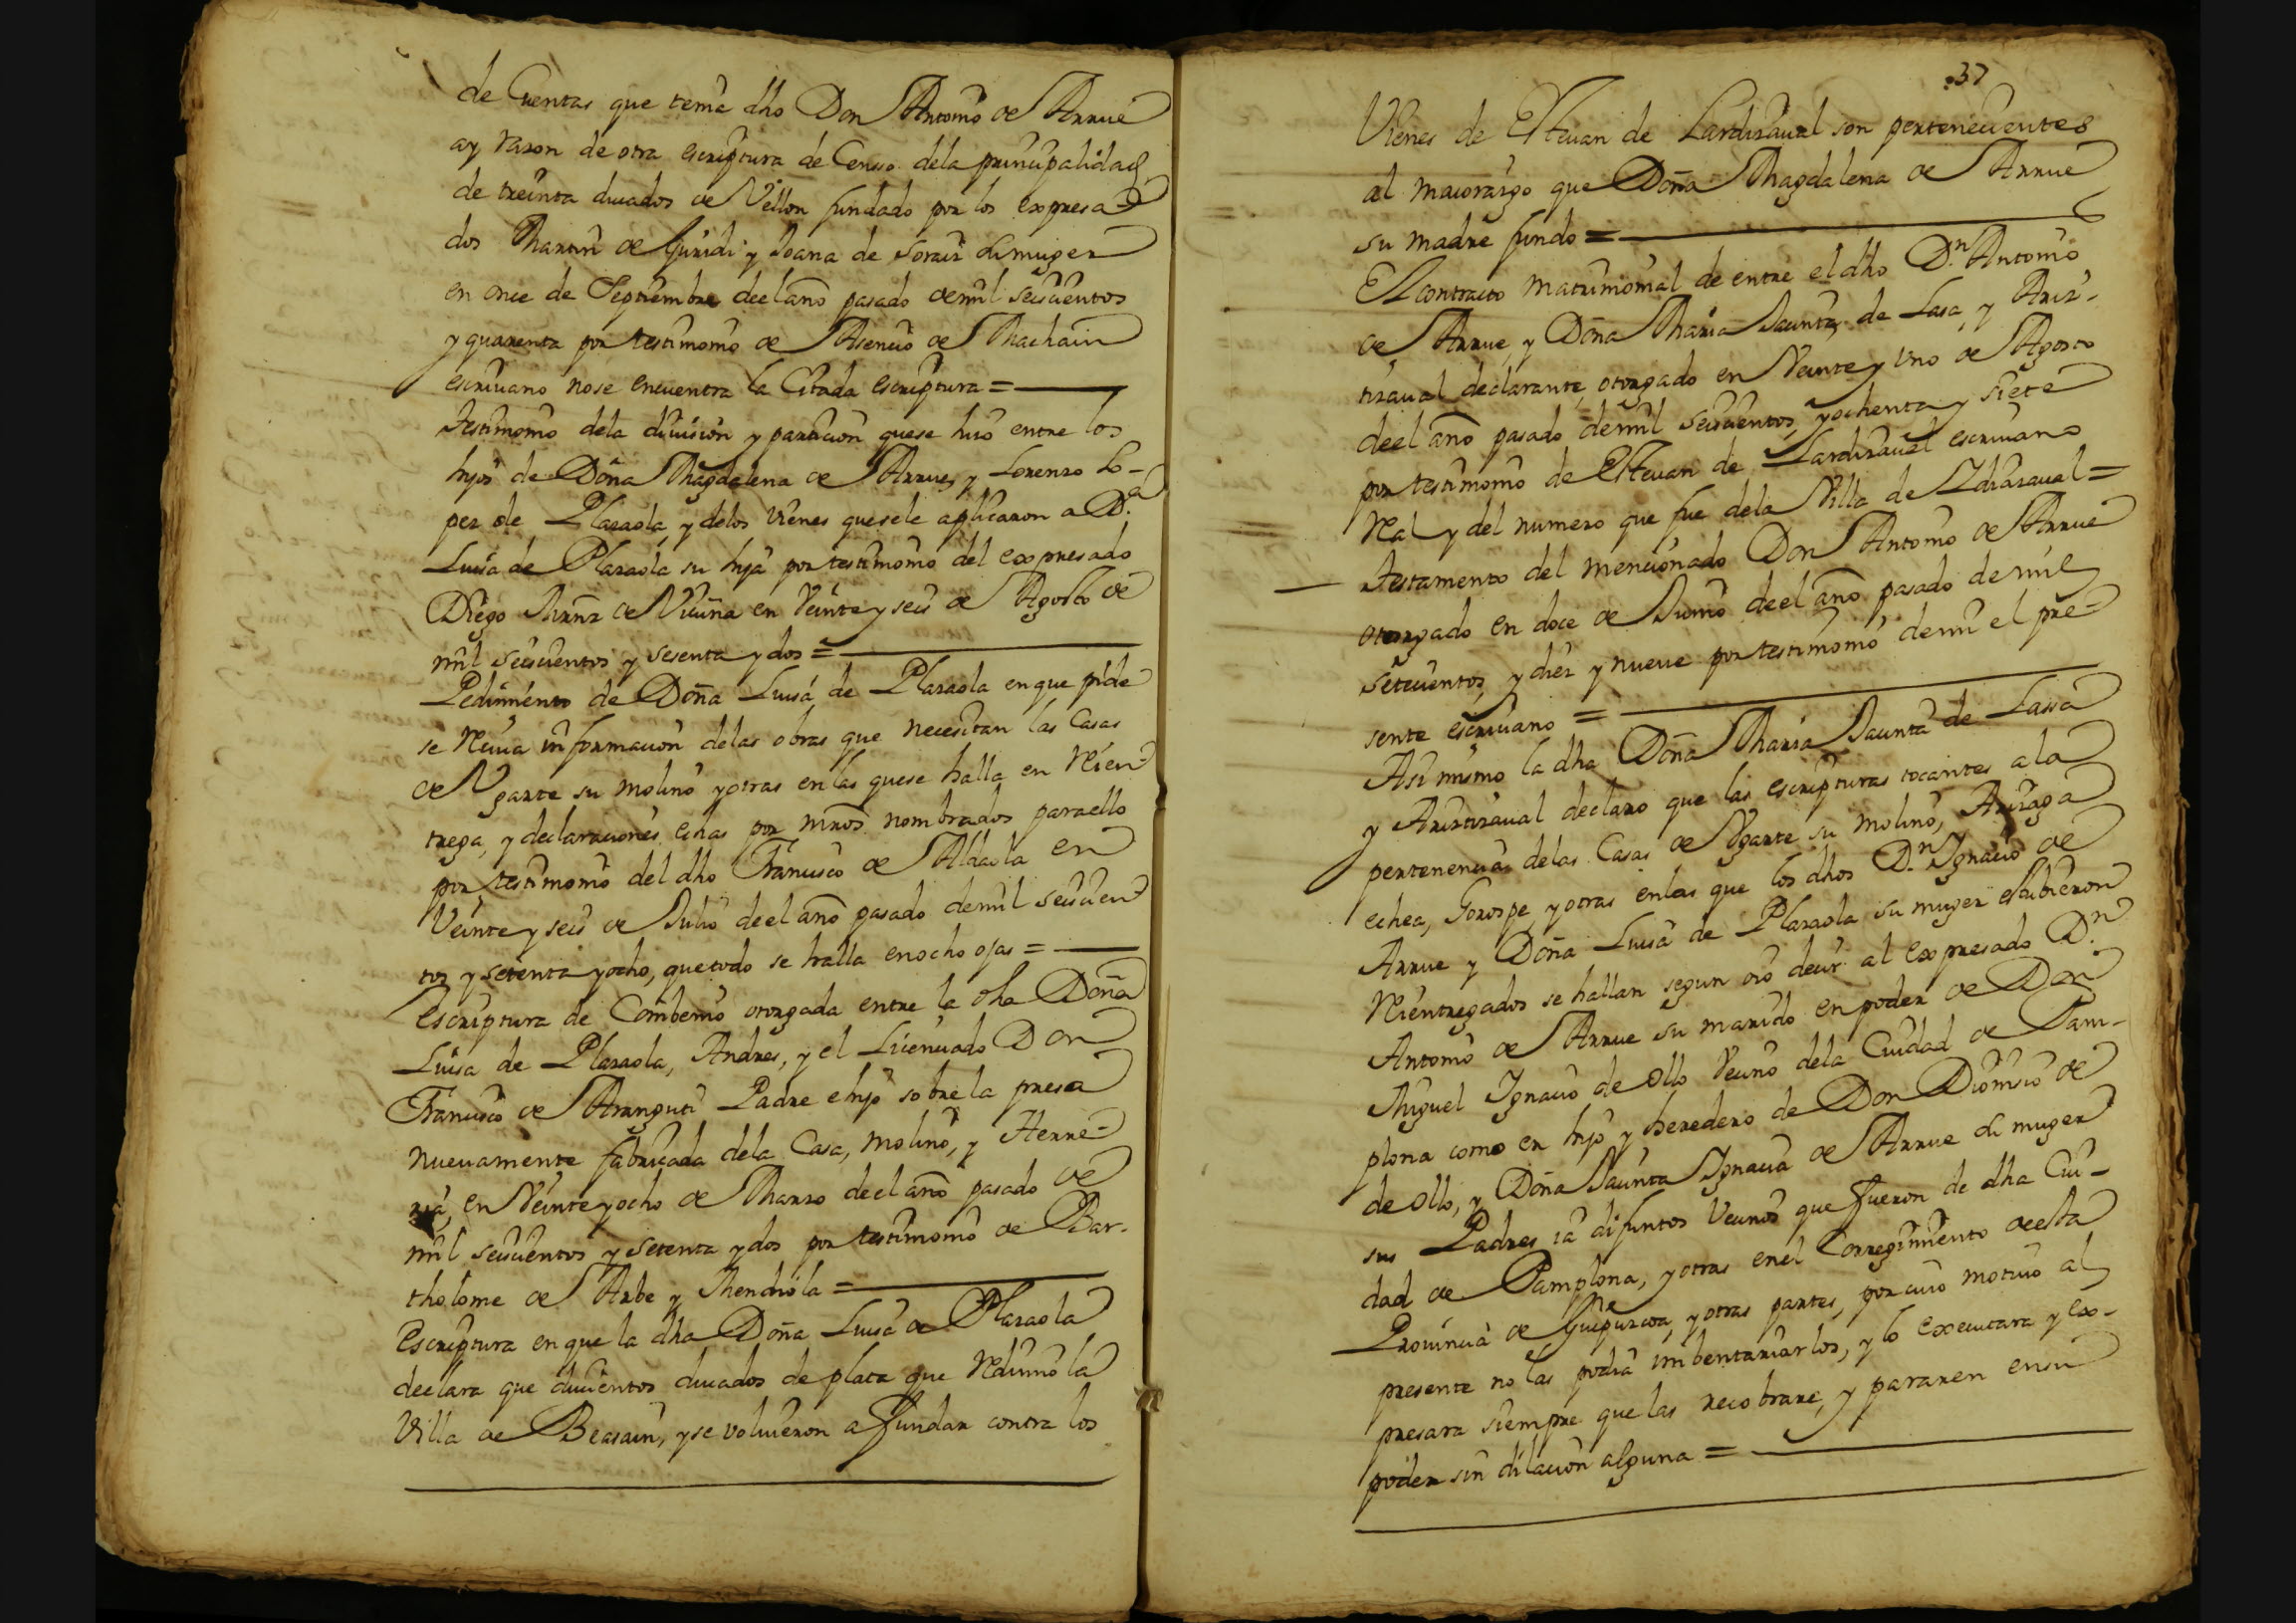 de Cuentas que tenia dho Don Antonio de Arrue
ay razon de otra escriptura de Censso dela principalidad
de treinta ducados de Vellon fundado por los expresa-
dos Martin de Guridi y Joana de Soraiz su muger
en once de Septiembre deel año pasado de mil seiscientos
y quarenta por testimonio de Asencio de Machain
escriuano nose encuentra la Citada escriptura =
Testimonio dela diuision y particion quese hizo entre los
hijos de Doña Magdalena de Arrue, y Lorenzo Lo-
pez de Plazaola, y delos Vienes quesele aplicaron a D.ª
Luisa de Plazaola su hija por testimonio del expresado
Diego Mrnz de Vicuña en Veinte y seis de Agosto de
mil seiscientos y sesenta y dos =
Pedimiento de Doña Luisa de Plazaola en que pide
se reciua informacion delas obras que necesitan las Casas
de Vgarte su molino y otras en las quese halla en rien-
trega, y declaraciones echas por mros nombrados para ello
por testimonio del dho Francisco de Aldaola en
Veinte y seis de Julio deel año pasado de mil seiscien-
tos y setenta y ocho, que todo se halla en ocho ojas =
Escriptura de Combenio otorgada entre la dha Doña
Luisa de Plazaola, Andres, y el Licenciado Don
Francisco de Aranguti Padre e hijo sobre la presa
nueuamente fabricada dela Casa, molino, y Herre-
ria, en Veinte y ocho de Marzo deel año pasado de
mil seiscientos y setenta y dos por testimonio de Bar-
tholome de Arbe y Mendiola =
Escriptura en que la dha Doña Luisa de Plazaola
declara que ducientos ducados de plata que redimio la
Villa de Beasain, y se voluieron a fundar contra los
37
Vienes de Esteuan de Lardizaual son pertenecientes
al maiorazgo que Doña Magdalena de Arrue
su madre fundo =
El contracto matrimonial de entre el dho D.n Antonio
de Arrue, y Doña Maria Jacinta de Lasa, y Ariz-
tizaual declarante, otorgado en Veinte y Vno de Agosto
deel año pasado de mil seiscientos, y ochenta y siete
por testimonio de Esteuan de Lardizaual escriuano
Real y del numero que fue dela Villa de Ydiazaual =
Testamento del mencionado Don Antonio de Arrue
otorgado en doce de Junio deel año pasado de mil
setecientos, y diez y nueue por testimonio de mi el pre-
sente escriuano =
Asi mismo la dha Doña Maria Jacinta de Lassa
y Ariztizaual declaro que las escripturas tocantes a la
pertenencia delas Casas de Vgarte su molino, Arizaga
echea, Gorospe, y otras en las que los dhos D.n Ygnacio de
Arrue y Doña Luisa de Plazaola su muger estubieron
rientregados se hallan segun oió decir al expresado D.n
Antonio de Arrue su marido en poder de Don
Miguel Ygnacio de Ollo Vecino dela Ciudad de Pam-
plona como en hijo y heredero de Don Dionisio de
de Ollo, y Doña Jacinta Ygnacia de Arrue su muger
sus Padres ia difuntos Vecinos que fueron de dha Ciu-
dad de Pamplona, y otras en el Corregimiento de esta
Prouincia de Guipuzcoa, y otras partes, por cuio motiuo al
presente no las podia imbentariarlos, y lo executara y ex-
presara siempre que las recobrare, y pararen en su
poder sin dilacion alguna =